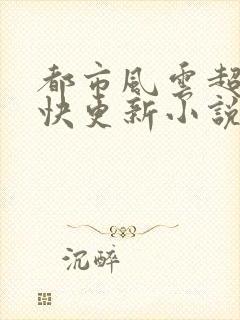 都市風雲超
快更新小說
沉醉